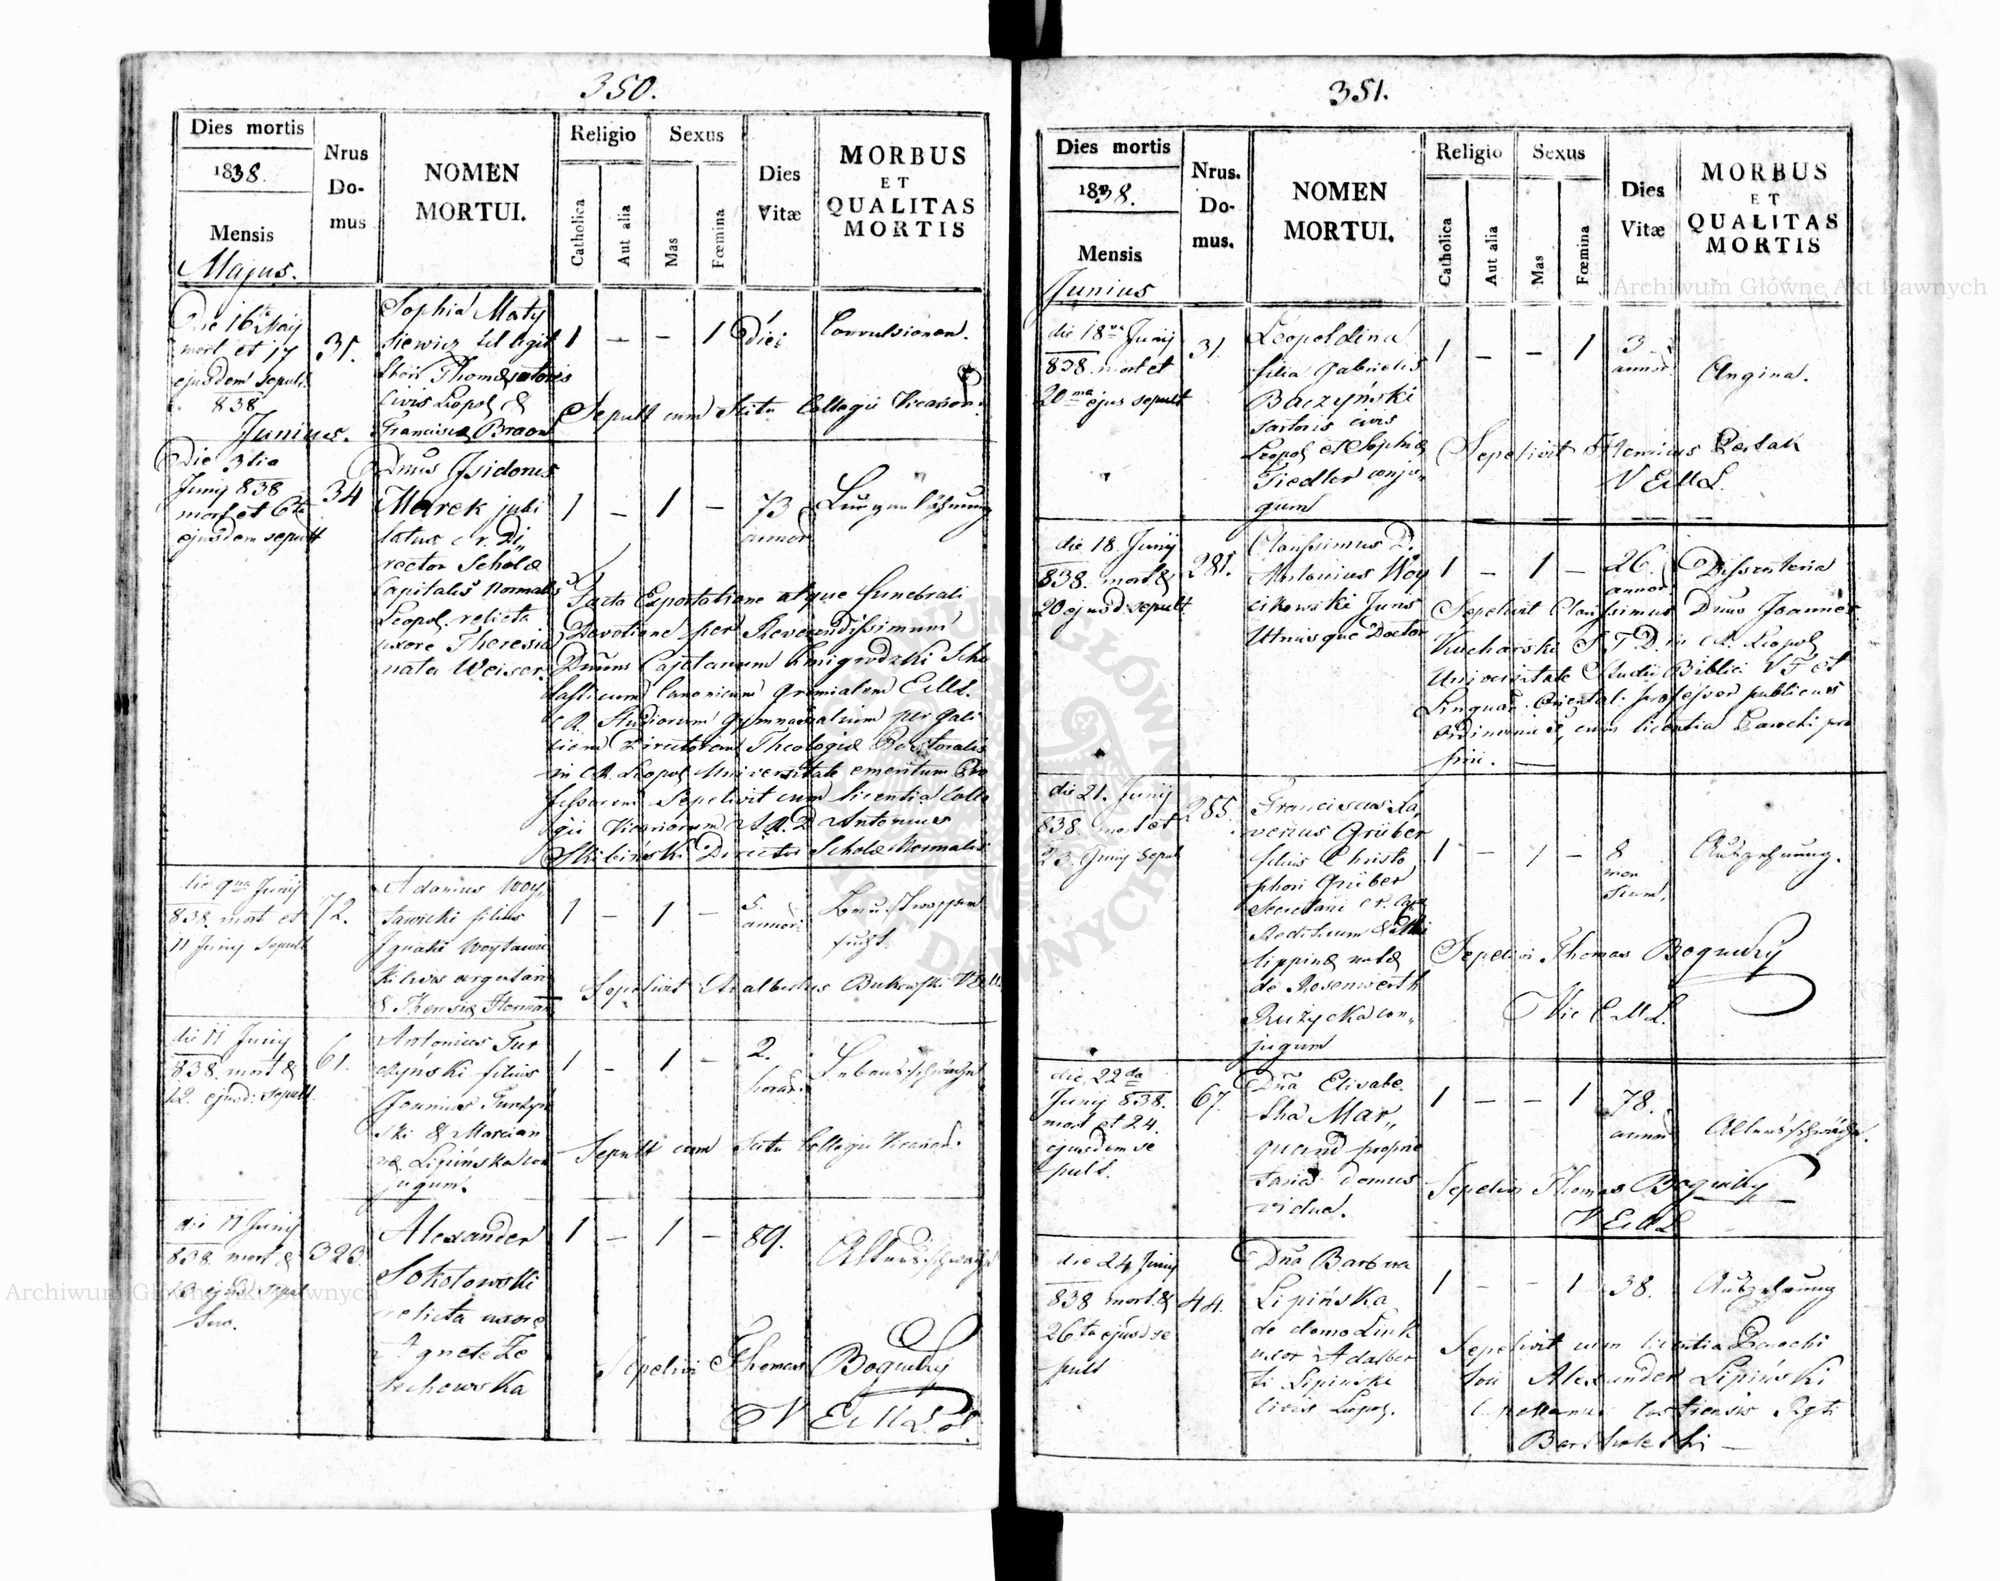 350.
Dies mortis
1838.
Mensis
Majus.
Nrus
Do-
mus
NOMEN
MORTUI.
Religio
Catholica
Aut alia
Sexus
Mas
Fœmina
Dies
Vitæ
MORBUS
ET
QUALITAS
MORTIS
Die 16ta Maij
mort et 17
ejusdem sepult.
838
31.
Sophia Maty
siewicz fil legit
Thomæ sutoris
Civis Leopol &
Francisca Braon
1 – – 1 diei
Convulsionen.
Sepult cum Scitu Collegii Vicarior.
Junius.
Die 3tia
Junij 838
mort et 6ta
ejusdem sepult
34
Dnus Isidorus
Marek jubi
latus c. r. Di„
rector Scholæ
Capitalis Normalis
Leopol relicta
uxore Theresia
nata Weiser.
1 – 1 – 73
annor
Lungenlähmung
Facta Exportatione atque funebrali
Devotione per Reverendissimum
Dnum Cajetanum Kmigrodzki Scho
lasticum Canonicum Gremialem E.M.L.
C.R. Studiorum Gymnasialium per Gali
ciem Directorem Theologiæ Pastoralis
in C.R. Leopol Universitate emeritum Pro
fessorem Sepelivit cum licentia Colle
gii Vicariorum A.R.D. Antonius
Skibiński Director Scholæ Normalis
die 9na Junij
838 mort et
11 Junij Sepult
72.
Adamus Woy„
tawicki filius
Ignatii Woytawic
ki
& Theresiæ Homan
1 – 1 – 5.
annor.
Sepelivit Adalbertus Bukowski V.E.M.L.
die 11 Junij
838. mort &
12. ejusd: sepult.
61.
Antonius Tur
czyński filius
Joannis Turczyń
ski & Marcian
næ Lipińska con
jugum.
1 – 1 – 2.
horar.
Lebensschwäche
Sepult cum Scitu Collegii Vicarior.
die 11 Junij
838 mort &
323.
Alexander
Sokołowski
relicta uxore
Agnete Ze
lechowska
1 – 1 – 89.
Altersschwäche
Sepelivi Thomas Bogucky
V E.M.L.
351.
Dies mortis
1838.
Mensis
Junius
Nrus.
Do-
mus.
NOMEN
MORTUI.
Religio
Catholica
Aut alia
Sexus
Mas
Fœmina
Dies
Vitæ
MORBUS
ET
QUALITAS
MORTIS
die 18va Junij
838. mort et
20ma ejus sepult
31.
Leopoldina
filia Gabrielis
Baczyński
sartoris civis
Leopol et Sophiæ
Fiedler conju„
gum
1 – – 1 3
annor.
Angina.
Sepelivit Henricus Pestak
V E.M.L.
die 18. Junij
838. mort &
20 ejusd. sepult
281.
Clarissimus D.
Antonius Woy
cikowski Juris
Utriusque Doctor
1 – 1 – 26.
annor.
Dissenteria
Sepelivit Clarissimus Dnus Joannes
Kucharski S.T.D. in C.R. Leopol
Universitate Studii Biblici V.F. et
Linguar. Oriental. professor publicus
ordinarius, cum licentia Parochi pro
prii.
die 21. Junij
838. mort et
23. Junij sepul
285.
Franciscus Xa„
verius Grüber
filius Christo
phori Grüber
Secretarii C.R.
Philippinæ natæ
de Rosenwerth
Ruzycka con„
jugum
1 – 1 – 8
men
sium.
Auszehrung.
Sepelivi Thomas Bogucky
Vic E.M.L.
die 22da
Junij 838.
mort et 24.
ejusdem se
pult.
67.
Dna Elisabe
tha Mar„
quand proprie
taria domus
vidua.
1 – – 1 78.
annor
Altersschwäche.
Sepelivi Thomas Bogucky
V E.M.L.
die 24 Junij
838 mort. &
26ta ejusd se
pult
44.
Dna Barbara
Lipińska
de domo Link
uxor Adalber
ti Lipiński
Civis Leopol.
1 – – 1 38.
Auszehrung
Sepelivit cum licentia Parochi
loci Alexander Lipiński
Capellanus Castrensis Rgti
Bertholetti –
Archiwum Główne Akt Dawnych
Archiwum Główne Akt Dawnych